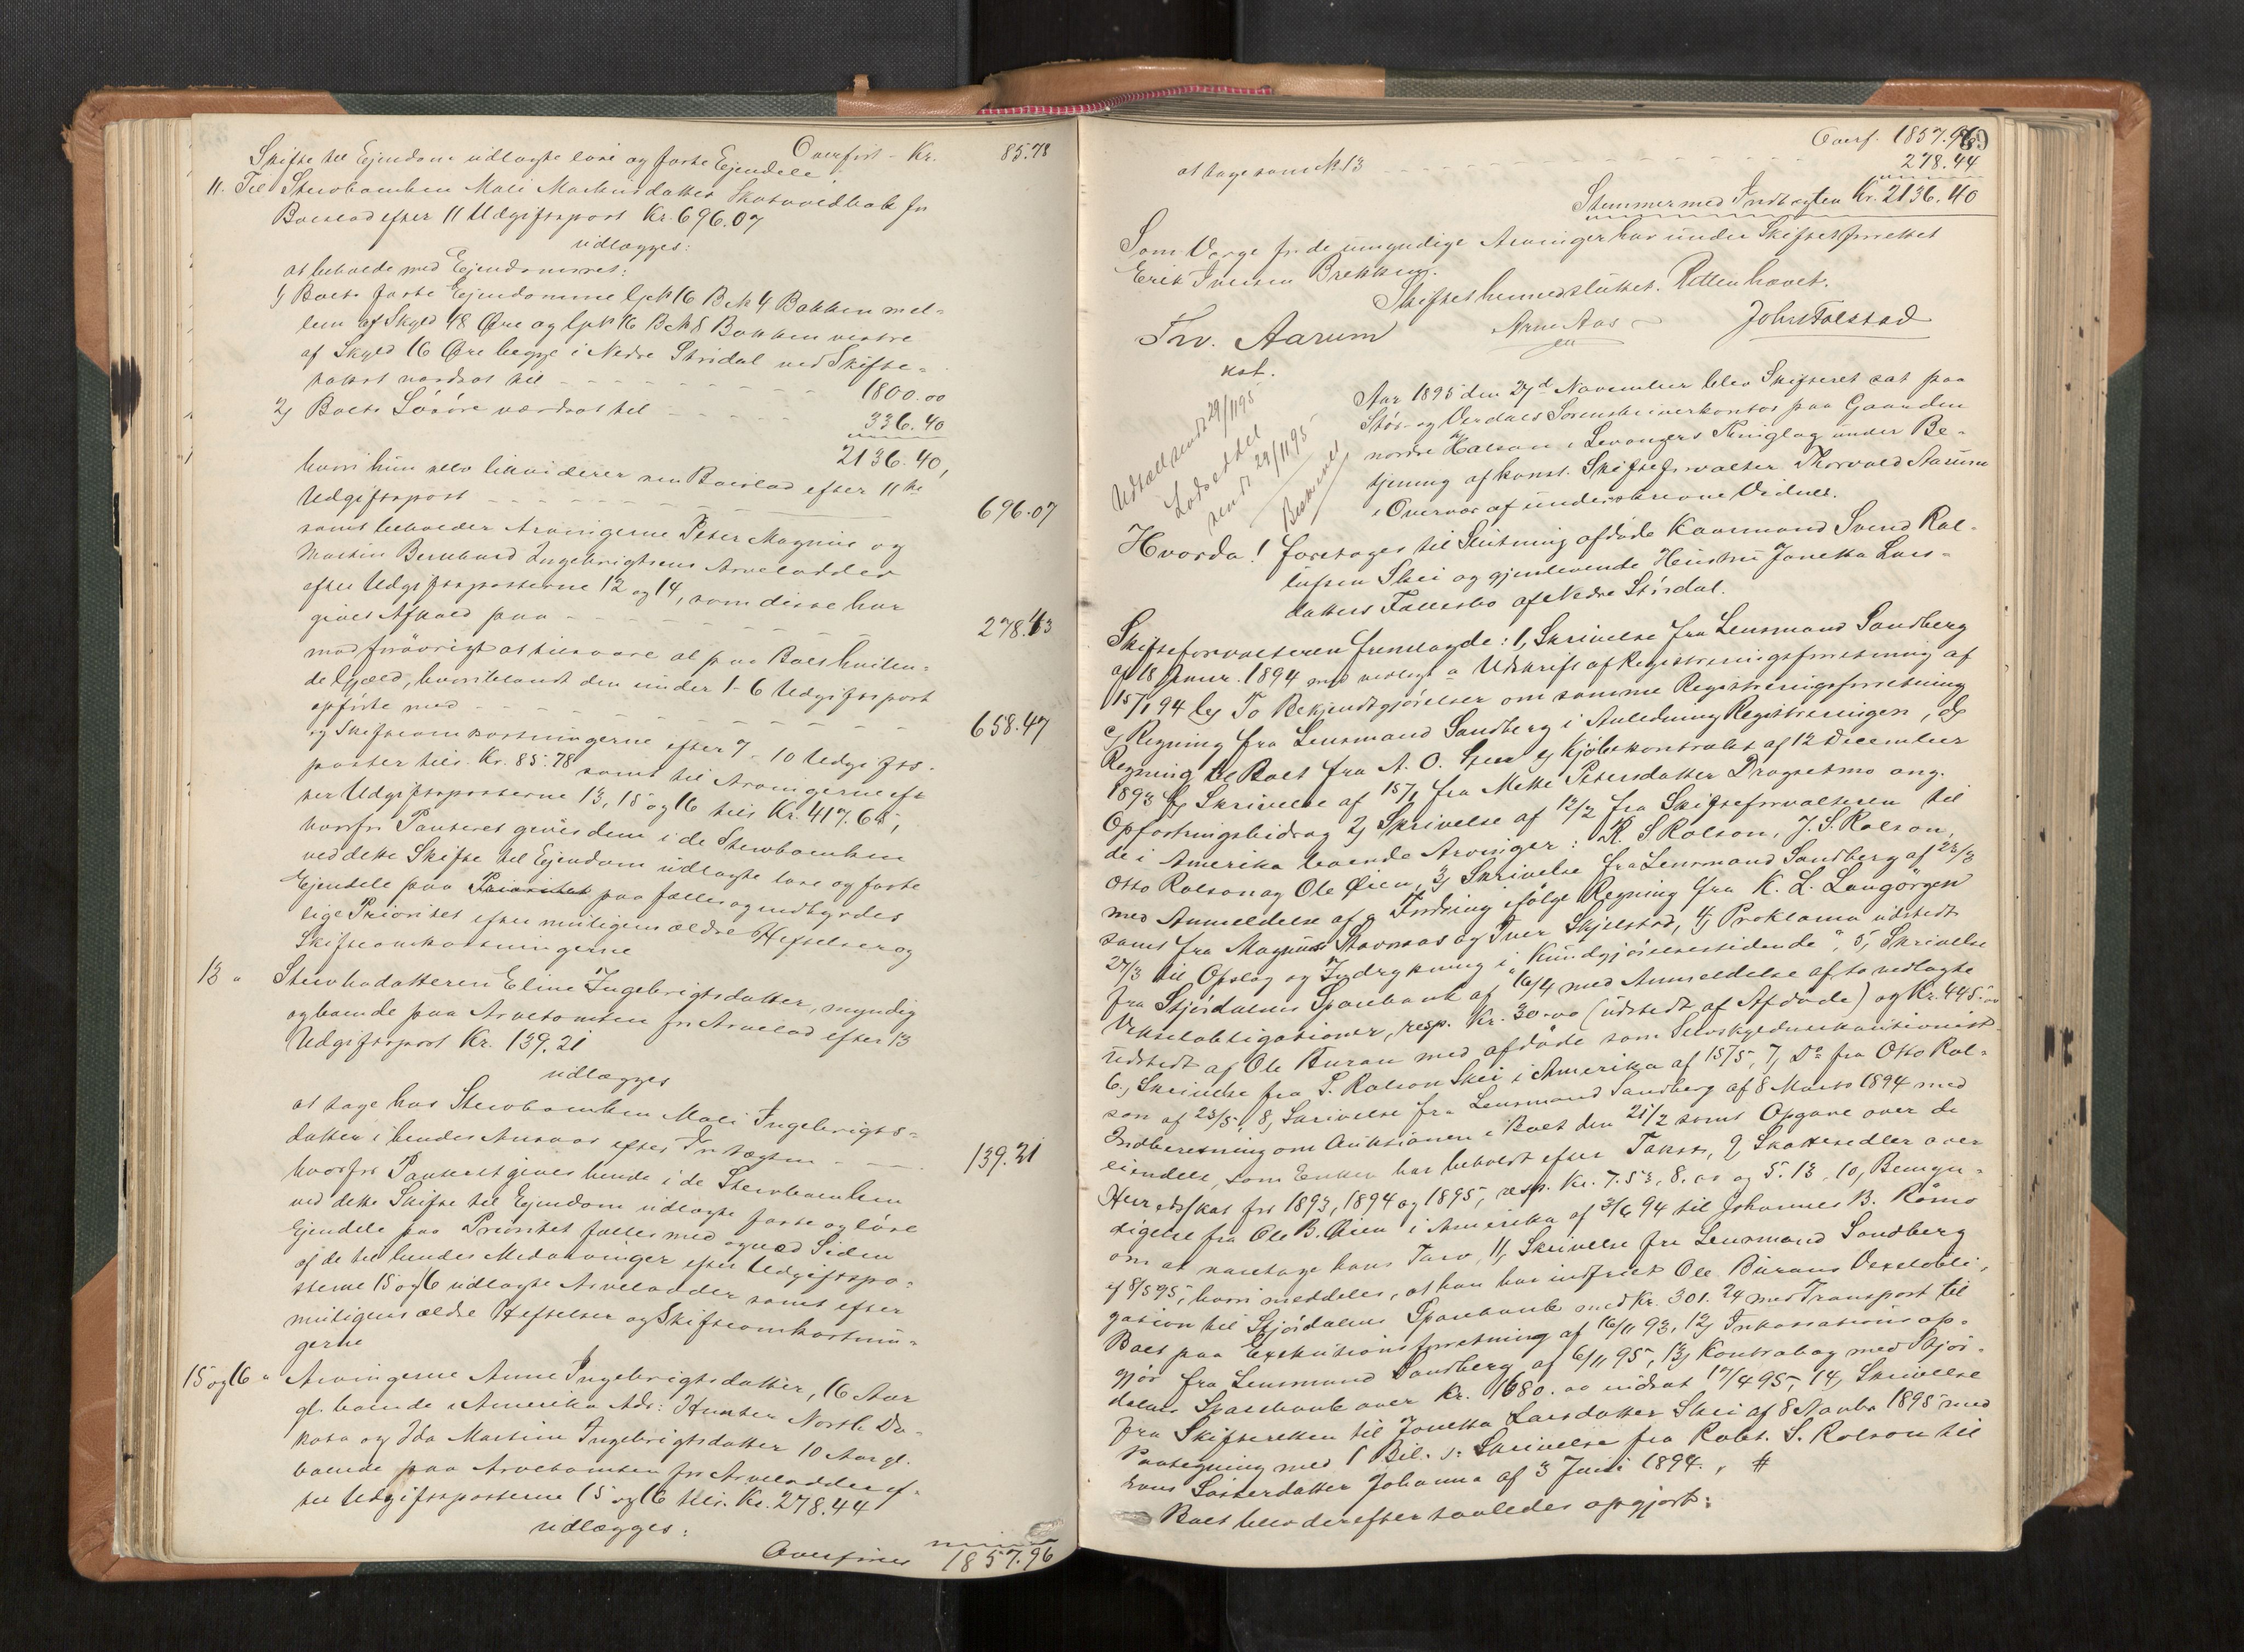 Overført - Kr. 85.78
Skifte til Ejendom udlagte løse og faste Ejendele
11. Til Stervboenken Mali Markusdatter Skatvoldbak for
Boeslod efter 11 Udgiftspost Kr. 696.07
udlægges:
at beholde med Ejendomsret:
1) Boets faste Ejendomme Lpk 16 Bk 4 Bakken mel-
lem af Skyld 48 Øre og Lpk 16 Bk 8 Bakken vestre
af Skyld 16 Øre begge i Nedre Stördal ved Skifte-
taxt værdsat til - - - 1800.00
2) Boets Løsøre værdsat til - - - 336.40
2136.40,
hvori hun selv likviderer sin Boeslod efter 11te
Udgiftspost - - - 696.07
samt beholder Arvingerne Peter Magnus og
Martin Bernhard Ingebrigtsens Arvelodder
efter Udgiftsposterne 12 og 14, som disse har
givet Afkald paa - - - 278.43
mod forøvrigt at tilsvare al paa Boet hvilen-
de Gjæld, hvoriblandt den under 1-6 Udgiftspost
opførte med - - - 658.47
og Skifteomkostningerne efter 7 - 10 Udgifts-
poster tils. Kr. 85.78 samt til Arvingerne ef-
ter Udgiftsposterne 13, 15 og 16 tils Kr. 417.65,
hvorfor Panteret gives dem i de Stervboenken
ved dette Skifte til Ejendom udlagte løse og faste
Ejendele paa Prioritet paa fælles og indbyrdes
lige Prioritet efter muligens ældre Heftelser og
Skifteomkostningerne
13 " Stervbodatteren Eline Ingebrigtsdatter, myndig
og boende paa Arvetomten for Arvelod efter 13
Udgiftspost Kr. 139.21
udlægges
at tage hos Stervboenken Mali Ingebrigts-
datter i hendes Ansvar efter Indtægten - - - 139.21
hvorfor Panteret gives hende i de Stervboenken
ved dette Skifte til Ejendom udlagte faste og løse
Ejendele paa Prioritet fælles med og ved Siden
af de til hendes Medarvinger efter Udgiftspo-
sterne 15 og 16 udlagte Arvelodder samt efter
muligens ældre Heftelser og Skifteomkostnin-
gerne
15 og 16 " Arvingerne Anne Ingebrigtsdatter, 16 Aar
gl. boende i Amerika Adr: Hunter North Da-
kota og Ida Martine Ingebrigtsdatter 10 Aar gl.
boende paa Arvetomten for Arvelodder ef-
ter Udgiftsposterne 15 og 16 tils. Kr. 278.44
udlægges:
Overføres 1857.96
89
Overf. 1857.96
at tage som No 13 - - - 278.44
Stemmer med Indtægten Kr. 2136.40
Som Værge for de umyndige Arvinger har under Skiftet forrettet
Erik Iversen Brekken.
Skiftet hermed sluttet. Retten hævet.
Trv. Aarum
kst.
Arne Aas
John Folstad
Udtællsendt 29/11 95
Lodseddel
sendt 29/11 95
Beskrevet
Aar 1895 den 27d November blev Skifteret sat paa
Stør- og Verdals Sorenskriverkontor paa Gaarden
nordre Halsan i Levangers Thinglag under Be-
tjening af konst. Skifteforvalter Thorvald Aarum
i Overvær af underskrevne Vidner.
Hvorda! foretoges til Slutning afdøde Kaarmand Svend Rol-
lufsen Skei og gjenlevende Hustru Jonetta Lars-
datters Fællesbo af Nedre Stördal.
Skifteforvalteren fremlagde: 1, Skrivelse fra Lensmand Sandberg
af 18 Januar. 1894 med vedlagt a Udskrift af Registreringsforretning af
15/1 94 b) To Bekjendtgjørelser om samme Registreringsforretning
c) Regning fra Lensmand Sandberg i Anledning Registreringen, d)
Regning til Boet fra A. O. Sten e) Kjøbekontrakt af 12 December
1893 f) Skrivelse af 15/1 fra Mette Petersdatter Dragsetmo ang.
Opfostringsbidrag 2) Skrivelse af 12/2 fra Skifteforvalteren til
de i Amerika boende Arvinger: R. S Rolson, J. S. Rolson,
Otto Rolson og Ole Øien, 3) Skrivelse fra Lensmand Sandberg af 23/3
med Anmeldelse af Fordring ifølge Regning fra K. L. Langörgen
samt fra Magnus Stavnaas og Iver Skjelstad, 4) Proklama udstedt
27/3 til Opslag og Indrykning i „Kundgjørelsestidende", 5, Skrivelse
fra Stjørdalens Sparebank af 16/4 med Anmeldelse af to vedlagte
Vekselobligationer, resp. Kr. 30.00 (udstedt af Afdøde) og Kr. 445.00
udstedt af Ole Buran med afdøde som Selvskyldnerkautionist
6, Skrivelse fra S. Rolson Skei i Amerika af 15/5, 7, Do fra Otto Rol-
son af 23/5, 8, Skrivelse fra Lensmand Sandberg af 8 Marts 1894 med
Indberetning om Auktionen i Boet den 21/2 samt Opgave over de
Eiendele, som Enken har beholdt efter Takst, 9, Skattesedler over
Herredsskat for 1893, 1894 og 1895, resp. Kr. 7.53, 8.00 og 5.13, 10, Bemyn-
digelse fra Ole B. Øien i Amerika af 3/6 94 til Johannes B. Rømo
om at varetage hans Tarv, 11, Skrivelse fra Lensmand Sandberg
af 8/5 95, hvori meddeles, at han har indfriet Ole Burans Vexelobli-
gation til Stjørdalens Sparebank med Kr. 301.24 med Transport til
Boet paa Exekutionsforretning af 16/11 93, 12) Inkassationsop-
gjør fra Lensmand Sandberg af 6/11 95, 13) Kontrabog med Stjør-
dalens Sparebank over Kr. 1680.00 indsat 17/4 95, 14, Skrivelse
fra Skifteretten til Jonetta Larsdatter Skei af 8 Novbr 1895 med
Paategning med 1 Bil. : Skrivelse fra Robt. S. Rolson til
hans Søsterdatter Johanna af 3 Juni 1894. , #
Boet blev derefter saaledes opgjort: